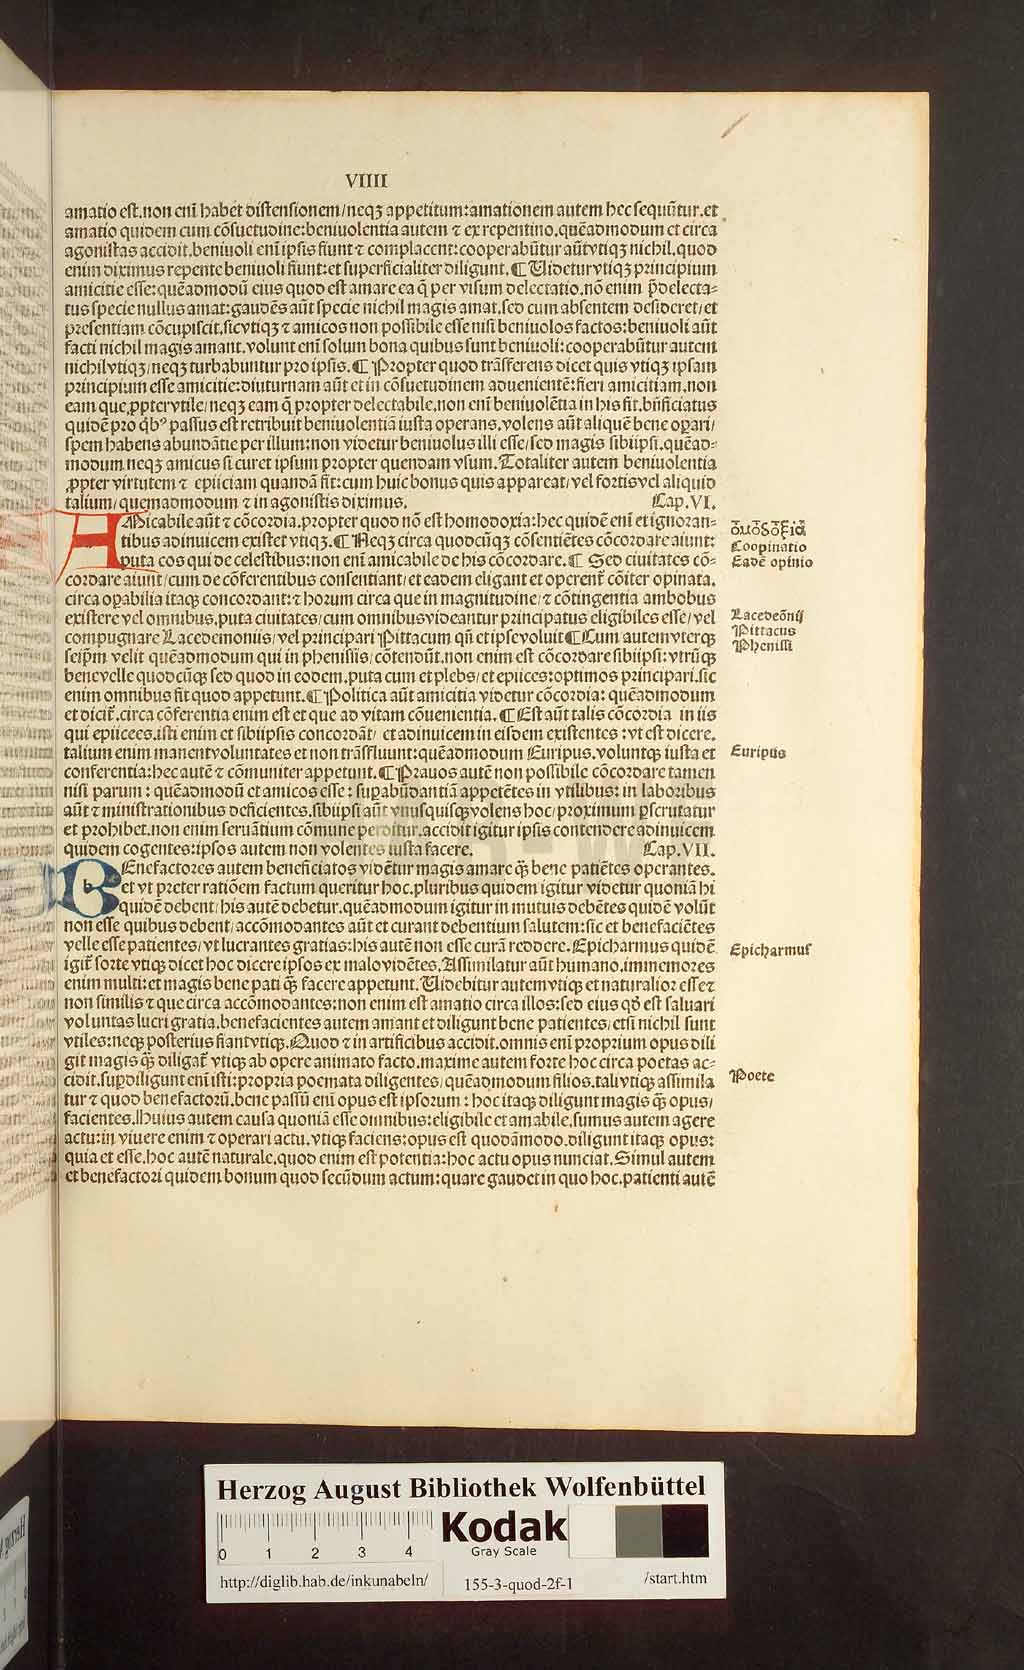 VIIII
amatio est.non enĩ habet distensionem/neqꝫ appetitum:amationem autem hec sequũtur.et
amatio quidem cum cõsuetudine:beniuolentia autem ⁊ ex repentino.quẽadmodum et circa
agonistas accidit.beniuoli enĩ ipsis fiunt ⁊ complacent:cooperabũtur aũt vtiqꝫ nichil.quod
enim diximus repente beniuoli fiunt:et superficialiter diligunt.¶ Uidetur vtiqꝫ principium
amicitie esse:quẽadmodũ eius quod est amare ea q̃ per visum delectatio.nõ enim p̃delecta-
tus specie nullus amat:gaudẽs aũt specie nichil magis amat.sed cum absentem desideret/et
presentiam cõcupiscit.sic vtiqꝫ ⁊ amicos non possibile esse nisi beniuolos factos:beniuoli aũt
facti nichil magis amant.volunt enĩ solum bona quibus sunt beniuoli:cooperabũtur autem
nichil vtiqꝫ/neqꝫ turbabuntur pro ipsis.¶ Propter quod trãsferens dicet quis vtiqꝫ ipsam
principium esse amicitie:diuturnam aũt et in cõsuetudinem aduenientẽ:fieri amicitiam.non
eam que ꝓpter vtile/neqꝫ eam q̃ propter delectabile.non enĩ beniuolẽtia in his fit.bñficiatus
quidẽ pro q̃bꝰ passus est retribuit beniuolentiã iusta operans.volens aũt aliquẽ bene oꝑari/
spem habens abundãtie per illum:non videtur beniuolus illi esse/sed magis sibiipsi.quẽad-
modum neqꝫ amicus si curet ipsum propter quendam vsum.Totaliter autem beniuolentia
ꝓpter virtutem ⁊ epiiciam quandã fit:cum huic bonus quis appareat/vel fortis vel aliquid
talium/quemadmodum ⁊ in agonistis diximus. Cap.VI.
AMicabile aũt ⁊ cõcordia.propter quod nõ est homodoxia:hec quidẽ enĩ et ignoran-
tibus adinuicem existet vtiqꝫ.¶ Neqꝫ circa quodcũqꝫ cõsentiẽtes cõcordare aiunt:
puta eos qui de celestibus:non enĩ amicabile de his cõcordare.¶ Sed ciuitates cõ-
cordare aiunt/cum de cõferentibus consentiant/et eadem eligant et operent᷑ cõiter opinata.
circa oꝑabilia itaqꝫ concordant:⁊ horum circa que in magnitudine/⁊ cõtingentia ambobus
existere vel omnibus.puta ciuitates/cum omnibus videantur principatus eligibiles esse/vel
compugnare Lacedemoniis/vel principari Pittacum qñ et ipse voluit¶ Cum autem vterqꝫ
seip̃m velit quẽadmodum qui in phenissis/cõtendũt.non enim est cõcordare sibiipsi:vtrũqꝫ
bene velle quodcũqꝫ sed quod in eodem.puta cum et plebs/et epiices:optimos principari.sic
enim omnibus fit quod appetunt.¶ Politica aũt amicitia videtur cõcordia: quẽadmodum
et dicit᷑.circa cõferentia enim est et que ad vitam cõuenientia.¶ Est aũt talis cõcordia in iis
qui epiicees.isti enim et sibiipsis concordãt/ et adinuicem in eisdem existentes :vt est dicere.
talium enim manent voluntates et non trãsfluunt:quẽadmodum Euripus.voluntqꝫ iusta et
conferentia:hec autẽ ⁊ cõmuniter appetunt.¶ Prauos autẽ non possibile cõcordare tamen
nisi parum : quẽadmodũ et amicos esse : suꝑabũdantiã appetẽtes in vtilibus: in laboribus
aũt ⁊ ministrationibus deficientes.sibiipsi aũt vnusquisqꝫ volens hoc/proximum ꝑscrutatur
et prohibet.non enim seruãtium cõmune perditur.accidit igitur ipsis contendere adinuicem
quidem cogentes:ipsos autem non volentes iusta facere. Cap.VII.
BEnefactores autem beneficiatos vidẽtur magis amare q̃ꝫ bene patiẽtes operantes.
et vt preter ratiõem factum queritur hoc.pluribus quidem igitur videtur quoniã hi
quidẽ debent/his autẽ debetur.quẽadmodum igitur in mutuis debẽtes quidẽ volũt
non esse quibus debent/accõmodantes aũt et curant debentium salutem:sic et benefaciẽtes
velle esse patientes/vt lucrantes gratias:his autẽ non esse curã reddere.Epicharmus quidẽ
igit᷑ forte vtiqꝫ dicet hoc dicere ipsos ex malo vidẽtes.Assimilatur aũt humano.immemores
enim multi:et magis bene pati q̃ꝫ facere appetunt.Uidebitur autem vtiqꝫ et naturalioꝛ esse ⁊
non similis ⁊ que circa accõmodantes:non enim est amatio circa illos:sed eius qd̓ est saluari
voluntas lucri gratia.benefacientes autem amant et diligunt bene patientes/etsi nichil sunt
vtiles:neqꝫ posterius fiant vtiqꝫ.Quod ⁊ in artificibus accidit.omnis enĩ proprium opus dili
git magis q̃ꝫ diligat᷑ vtiqꝫ ab opere animato facto.maxime autem forte hoc circa poetas ac-
cidit.suꝑdiligunt enĩ isti:propria poemata diligentes/quẽadmodum filios.tali vtiqꝫ assimila
tur ⁊ quod benefactorũ.bene passũ enĩ opus est ipsorum : hoc itaqꝫ diligunt magis q̃ꝫ opus/
facientes.Huius autem causa quoniã esse omnibus:eligibile et amabile.sumus autem agere
actu:in viuere enim ⁊ operari actu.vtiqꝫ faciens:opus est quodãmodo.diligunt itaqꝫ opus:
quia et esse.hoc autẽ naturale.quod enim est potentia:hoc actu opus nunciat.Simul autem
et benefactori quidem bonum quod secũdum actum:quare gaudet in quo hoc.patienti autẽ
Coopinatio
Eadẽ opinio
Lacedeõnij
Pittacus
Phenissi
Euripus
Epicharmus
Poete
Herzog August Bibliothek Wolfenbüttel
0 1 2 3 4
Kodak
Gray Scale
http://diglib.hab.de/inkunabeln/ 155-3-quod-2f-1 /start.htm